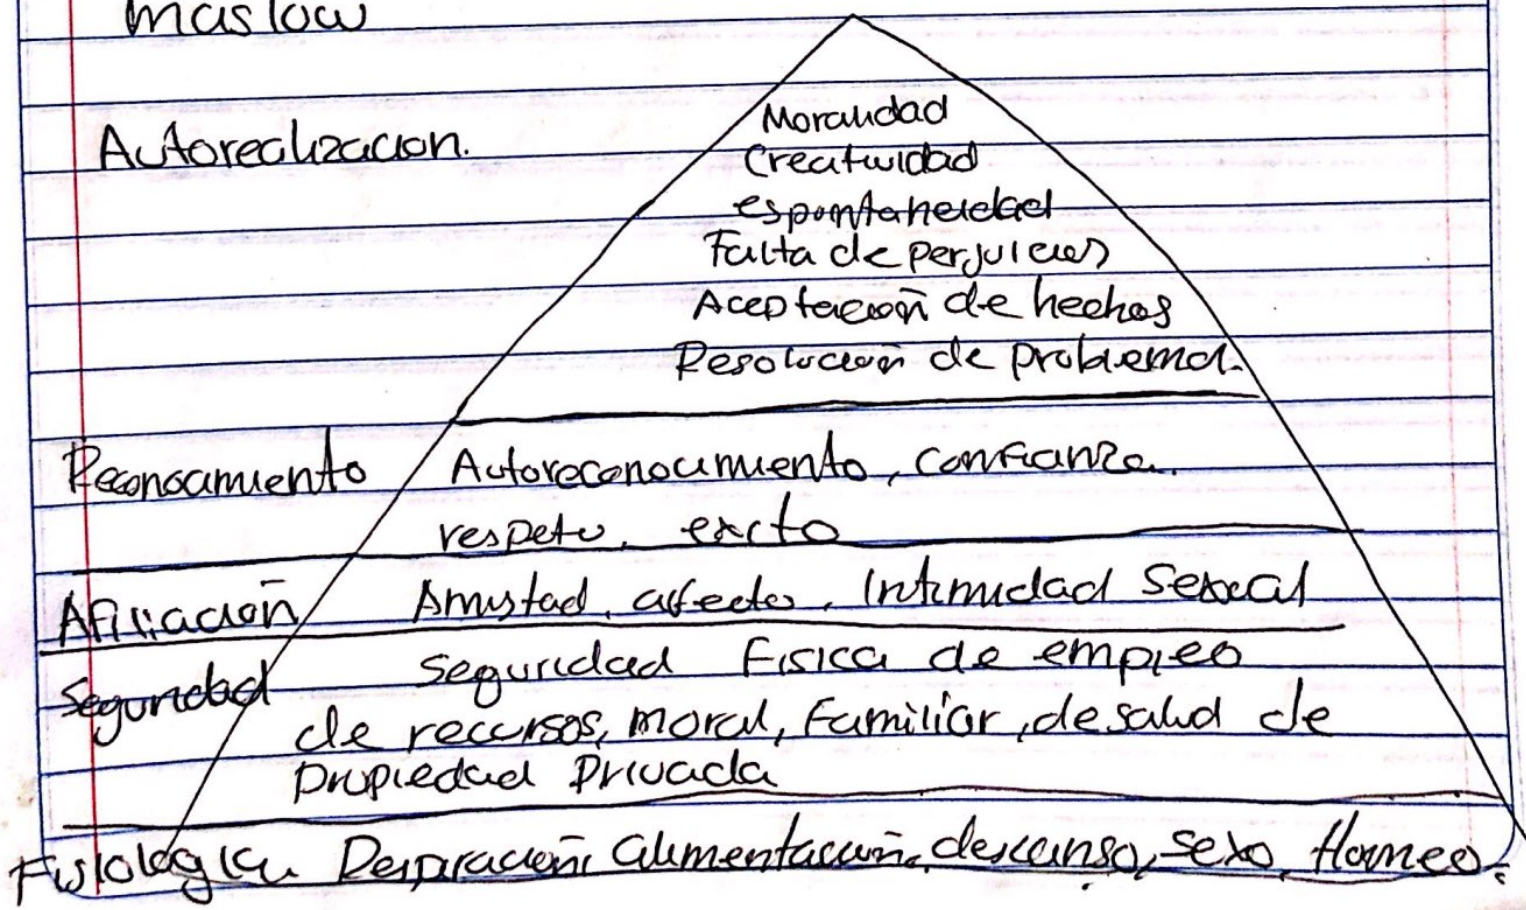 Maslow
Autorealizacion.
Moralidad
Creatividad
espontaneidad
Falta de perjuicios
Aceptación de hechos
Resolución de problema.
Reconocimiento
Autoreconocimiento, confianza.
respeto, exito
Afiliación
Amistad, afecto, Intimidad Sexual
Seguridad
Seguridad Fisica de empleo
de recursos, moral, Familiar, de salud de
Propiedad Privada
Fisiologica
Respiración, alimentación, descanso, sexo, Homeo.